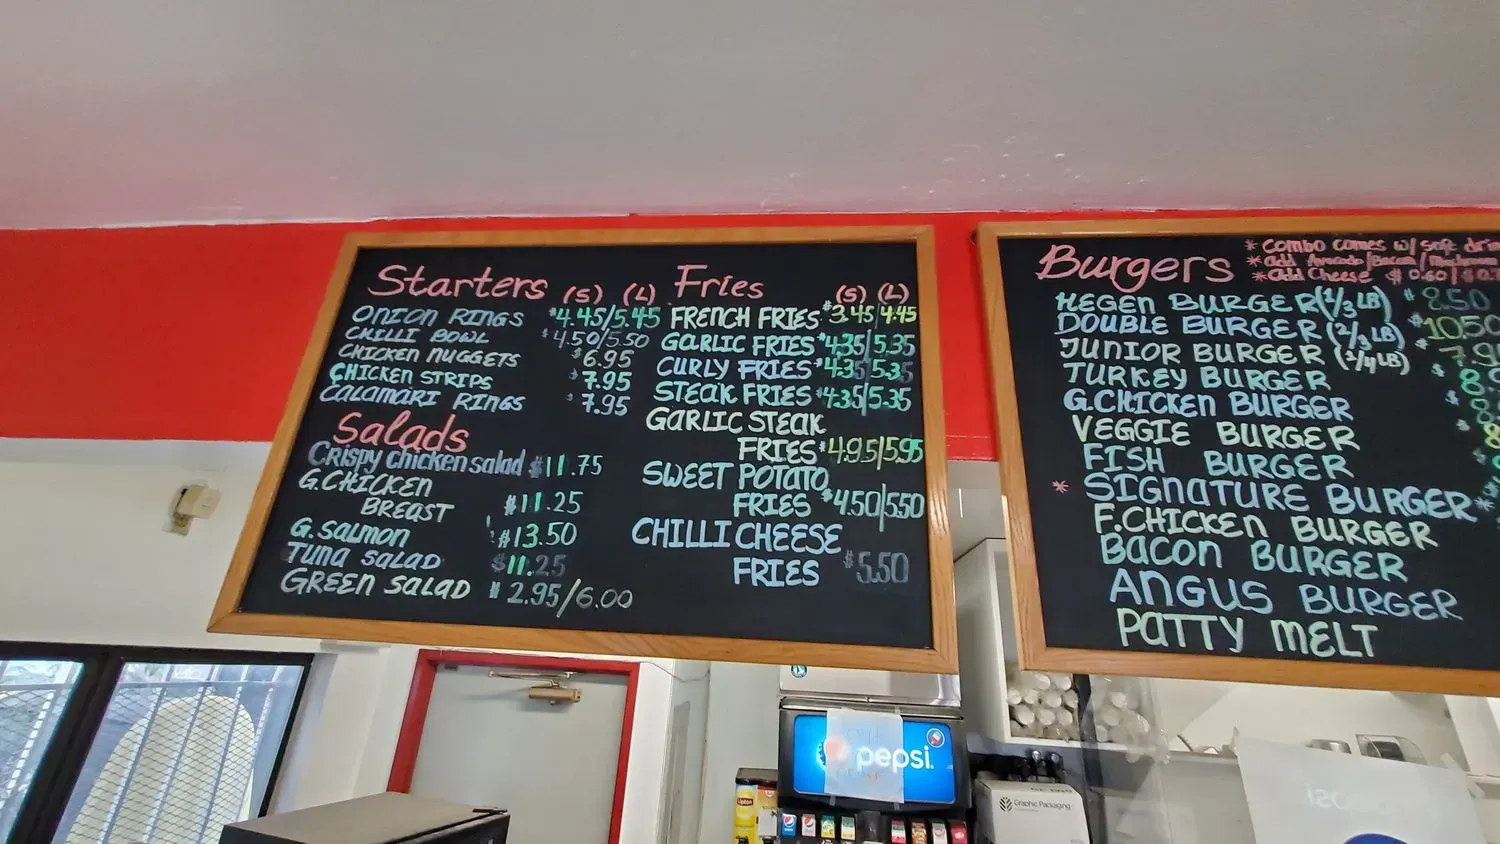 Starters (S) (L)
ONION RINGS $4.45/5.45
CHILLI BOWL $4.50/5.50
CHICKEN NUGGETS $6.95
CHICKEN STRIPS $7.95
CALAMARI RINGS $7.95
Salads
Crispy chicken salad $11.75
G.CHICKEN
BREAST $11.25
G.SALMON $13.50
TUNA SALAD $11.25
GREEN SALAD $2.95/6.00
Fries (S) (L)
FRENCH FRIES $3.45/4.45
GARLIC FRIES $4.35/5.35
CURLY FRIES $4.35/5.35
STEAK FRIES $4.35/5.35
GARLIC STEAK
FRIES $4.95/5.95
SWEET POTATO
FRIES $4.50/5.50
CHILLI CHEESE
FRIES $5.50
Burgers
* Combo comes w/ soft
* Add Avocado/Bacon/
* Add Cheese $0.60/
HEGEN BURGER (1/3 LB) 8.50
DOUBLE BURGER (2/3 LB) $10.50
JUNIOR BURGER (1/4 LB)
TURKEY BURGER $
G.CHICKEN BURGER
VEGGIE BURGER
FISH BURGER
* SIGNATURE BURGER*
F.CHICKEN BURGER
BACON BURGER
ANGUS BURGER
PATTY MELT
pepsi
Lipton
Graphic Packaging